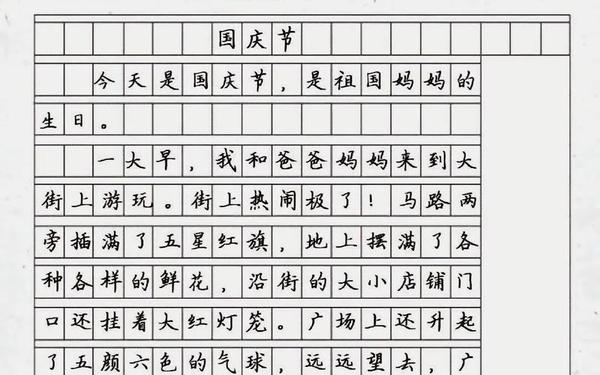 国庆节
今天是国庆节，是祖国妈妈的
生日。
一大早，我和爸爸妈妈来到大
街上游玩。街上热闹极了！马路两
旁插满了五星红旗，地上摆满了各
种各样的鲜花，沿街的大小店铺门
口还挂着大红灯笼。广场上还升起
了五颜六色的气球，远远望去，广